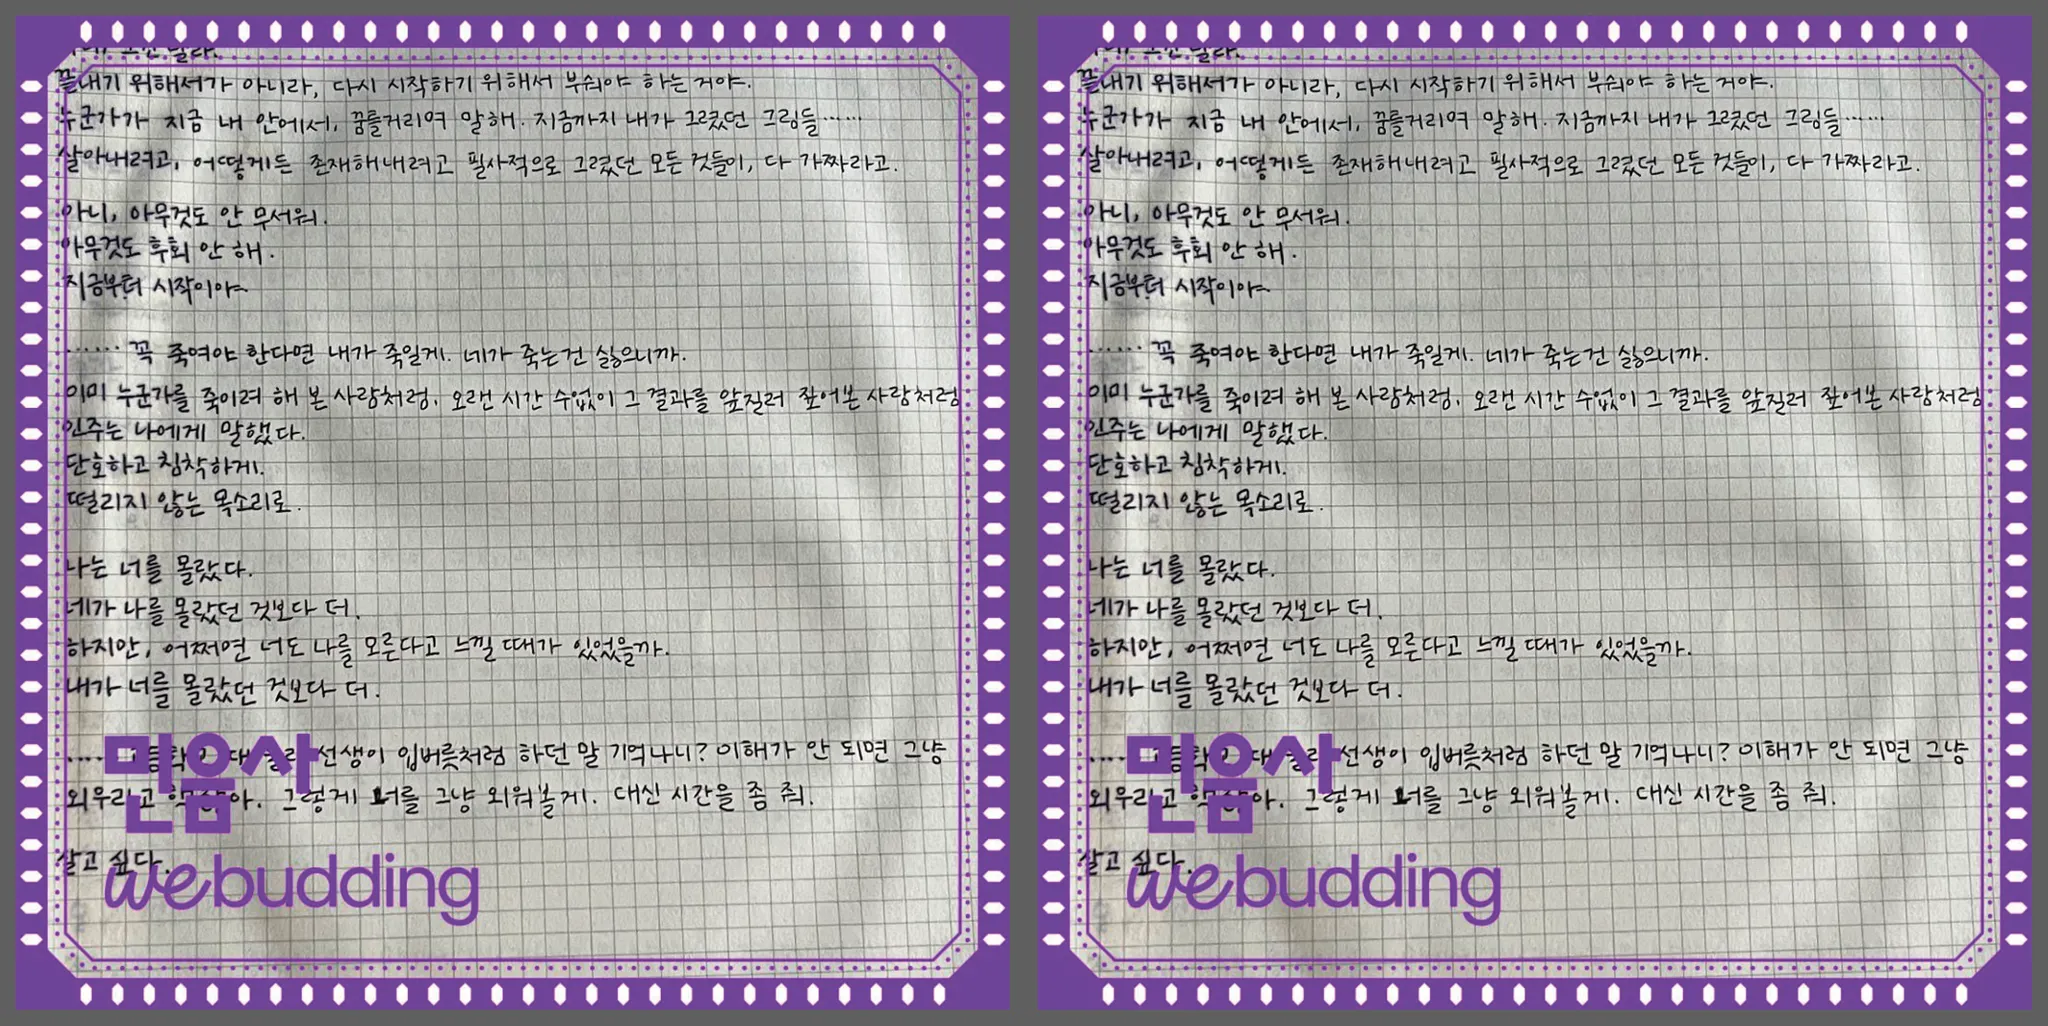 끝내기 위해서가 아니라, 다시 시작하기 위해서 부숴야 하는 거야.
누군가가 지금 내 안에서, 꿈틀거리며 말해. 지금까지 내가 그렸던 그림들……
살아내려고, 어떻게든 존재해내려고 필사적으로 그렸던 모든 것들이, 다 가짜라고.
아니, 아무것도 안 무서워.
아무것도 후회 안 해.
지금부터 시작이야
…… 꼭 죽여야 한다면 내가 죽일게. 네가 죽는건 싫으니까.
이미 누군가를 죽이려 해 본 사람처럼, 오랜 시간 수없이 그 결과를 앞질러 짚어본 사람처럼
인주는 나에게 말했다.
단호하고 침착하게.
떨리지 않는 목소리로.
나는 너를 몰랐다.
네가 나를 몰랐던 것보다 더.
하지만, 어쩌면 너도 나를 모른다고 느낄 때가 있었을까.
내가 너를 몰랐던 것보다 더.
…… 선생이 입버릇처럼 하던 말 기억나니? 이해가 안 되면 그냥
외우라고 그렇게 너를 그냥 외워볼게. 대신 시간을 좀 줘.
살고 싶다.
민음사
webudding
끝내기 위해서가 아니라, 다시 시작하기 위해서 부숴야 하는 거야.
누군가가 지금 내 안에서, 꿈틀거리며 말해. 지금까지 내가 그렸던 그림들……
살아내려고, 어떻게든 존재해내려고 필사적으로 그렸던 모든 것들이, 다 가짜라고.
아니, 아무것도 안 무서워.
아무것도 후회 안 해.
지금부터 시작이야
…… 꼭 죽여야 한다면 내가 죽일게. 네가 죽는건 싫으니까.
이미 누군가를 죽이려 해 본 사람처럼, 오랜 시간 수없이 그 결과를 앞질러 짚어본 사람처럼
인주는 나에게 말했다.
단호하고 침착하게.
떨리지 않는 목소리로.
나는 너를 몰랐다.
네가 나를 몰랐던 것보다 더.
하지만, 어쩌면 너도 나를 모른다고 느낄 때가 있었을까.
내가 너를 몰랐던 것보다 더.
…… 선생이 입버릇처럼 하던 말 기억나니? 이해가 안 되면 그냥
외우라고 그렇게 너를 그냥 외워볼게. 대신 시간을 좀 줘.
살고 싶다.
민음사
webudding